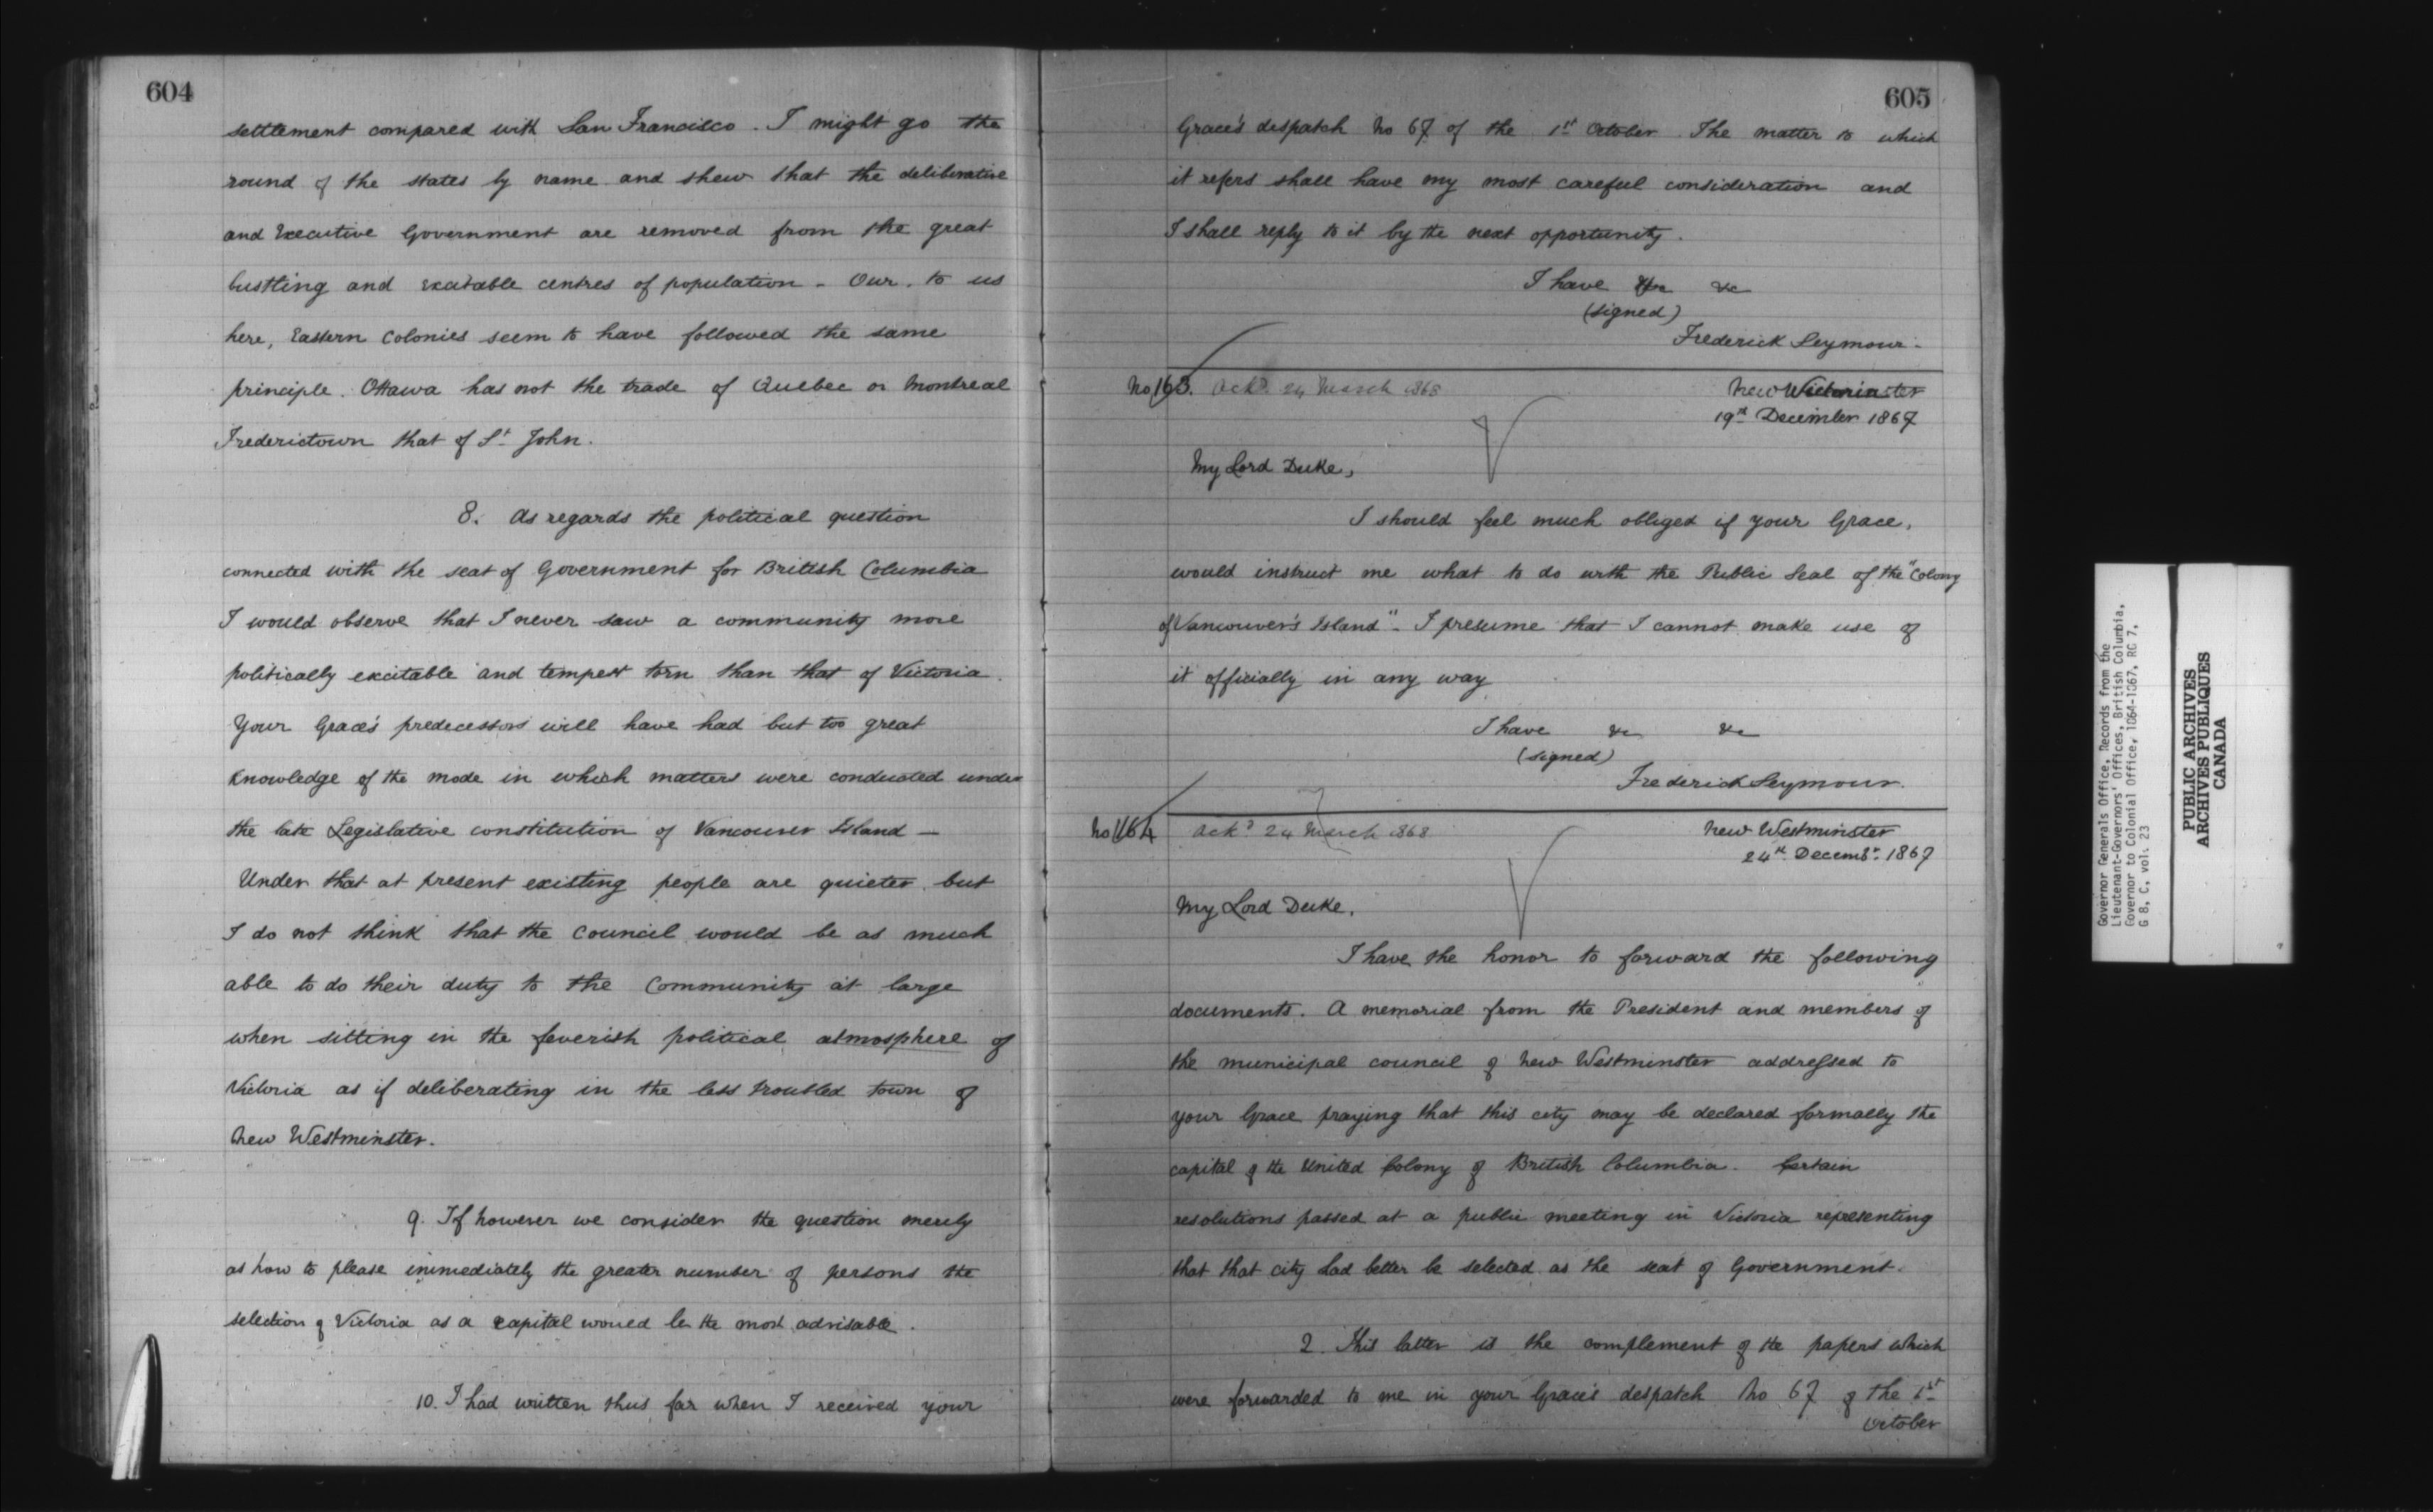 604
settlement compared with San Francisco. I might go the
round of the states by name and shew that the deliberative
and Executive Government are removed from the great
bustling and excitable centres of population - Our, to us
here, Eastern Colonies seem to have followed the same
principle. Ottawa has not the trade of Quebec or Montreal
Fredericton that of St John.
8. As regards the political question
connected with the seat of Government for British Columbia
I would observe that I never saw a community more
politically excitable and tempest torn than that of Victoria.
Your Grace's predecessors will have had but too great
knowledge of the mode in which matters were conducted under
the late Legislative constitution of Vancouver Island —
Under that at present existing people are quieter, but
I do not think that the Council would be as much
able to do their duty to the Community at large
when sitting in the feverish political atmosphere of
Victoria as if deliberating in the less troubled town of
New Westminster.
9. If however we consider the question merely
as how to please immediately the greater number of persons the
selection of Victoria as a capital would be the most advisable.
10. I had written thus far when I received your
605
Grace's despatch No 67 of the 1st October. The matter to which
it refers shall have my most careful consideration and
I shall reply to it by the next opportunity.
I have &c &c
(signed)
Frederick Seymour.
No 163. Ackd. 24 March 1868
New Westminster
19th December 1867
My Lord Duke,
I should feel much obliged if your Grace,
would instruct me what to do with the Public Seal of the "Colony
of Vancouver's Island". I presume that I cannot make use of
it officially in any way
I have &c &c
(signed)
Frederick Seymour.
No 164 Ackd 24 March 1868
New Westminster
24th Decembr. 1867
My Lord Duke,
I have the honor to forward the following
documents. A memorial from the President and members of
the municipal council of New Westminster addressed to
your Grace praying that this city may be declared formally the
capital of the United Colony of British Columbia. Certain
resolutions passed at a public meeting in Victoria representing
that that city had better be selected as the seat of Government.
2. This latter is the complement of the papers which
were forwarded to me in your Grace's despatch No 67 of the 1st
October
Governor Generals Office, Records from the
Lieutenant-Governors' Offices, British Columbia,
Governor to Colonial Office, 1864-1867. RG 7,
G 8, C, vol. 23
PUBLIC ARCHIVES
ARCHIVES PUBLIQUES
CANADA